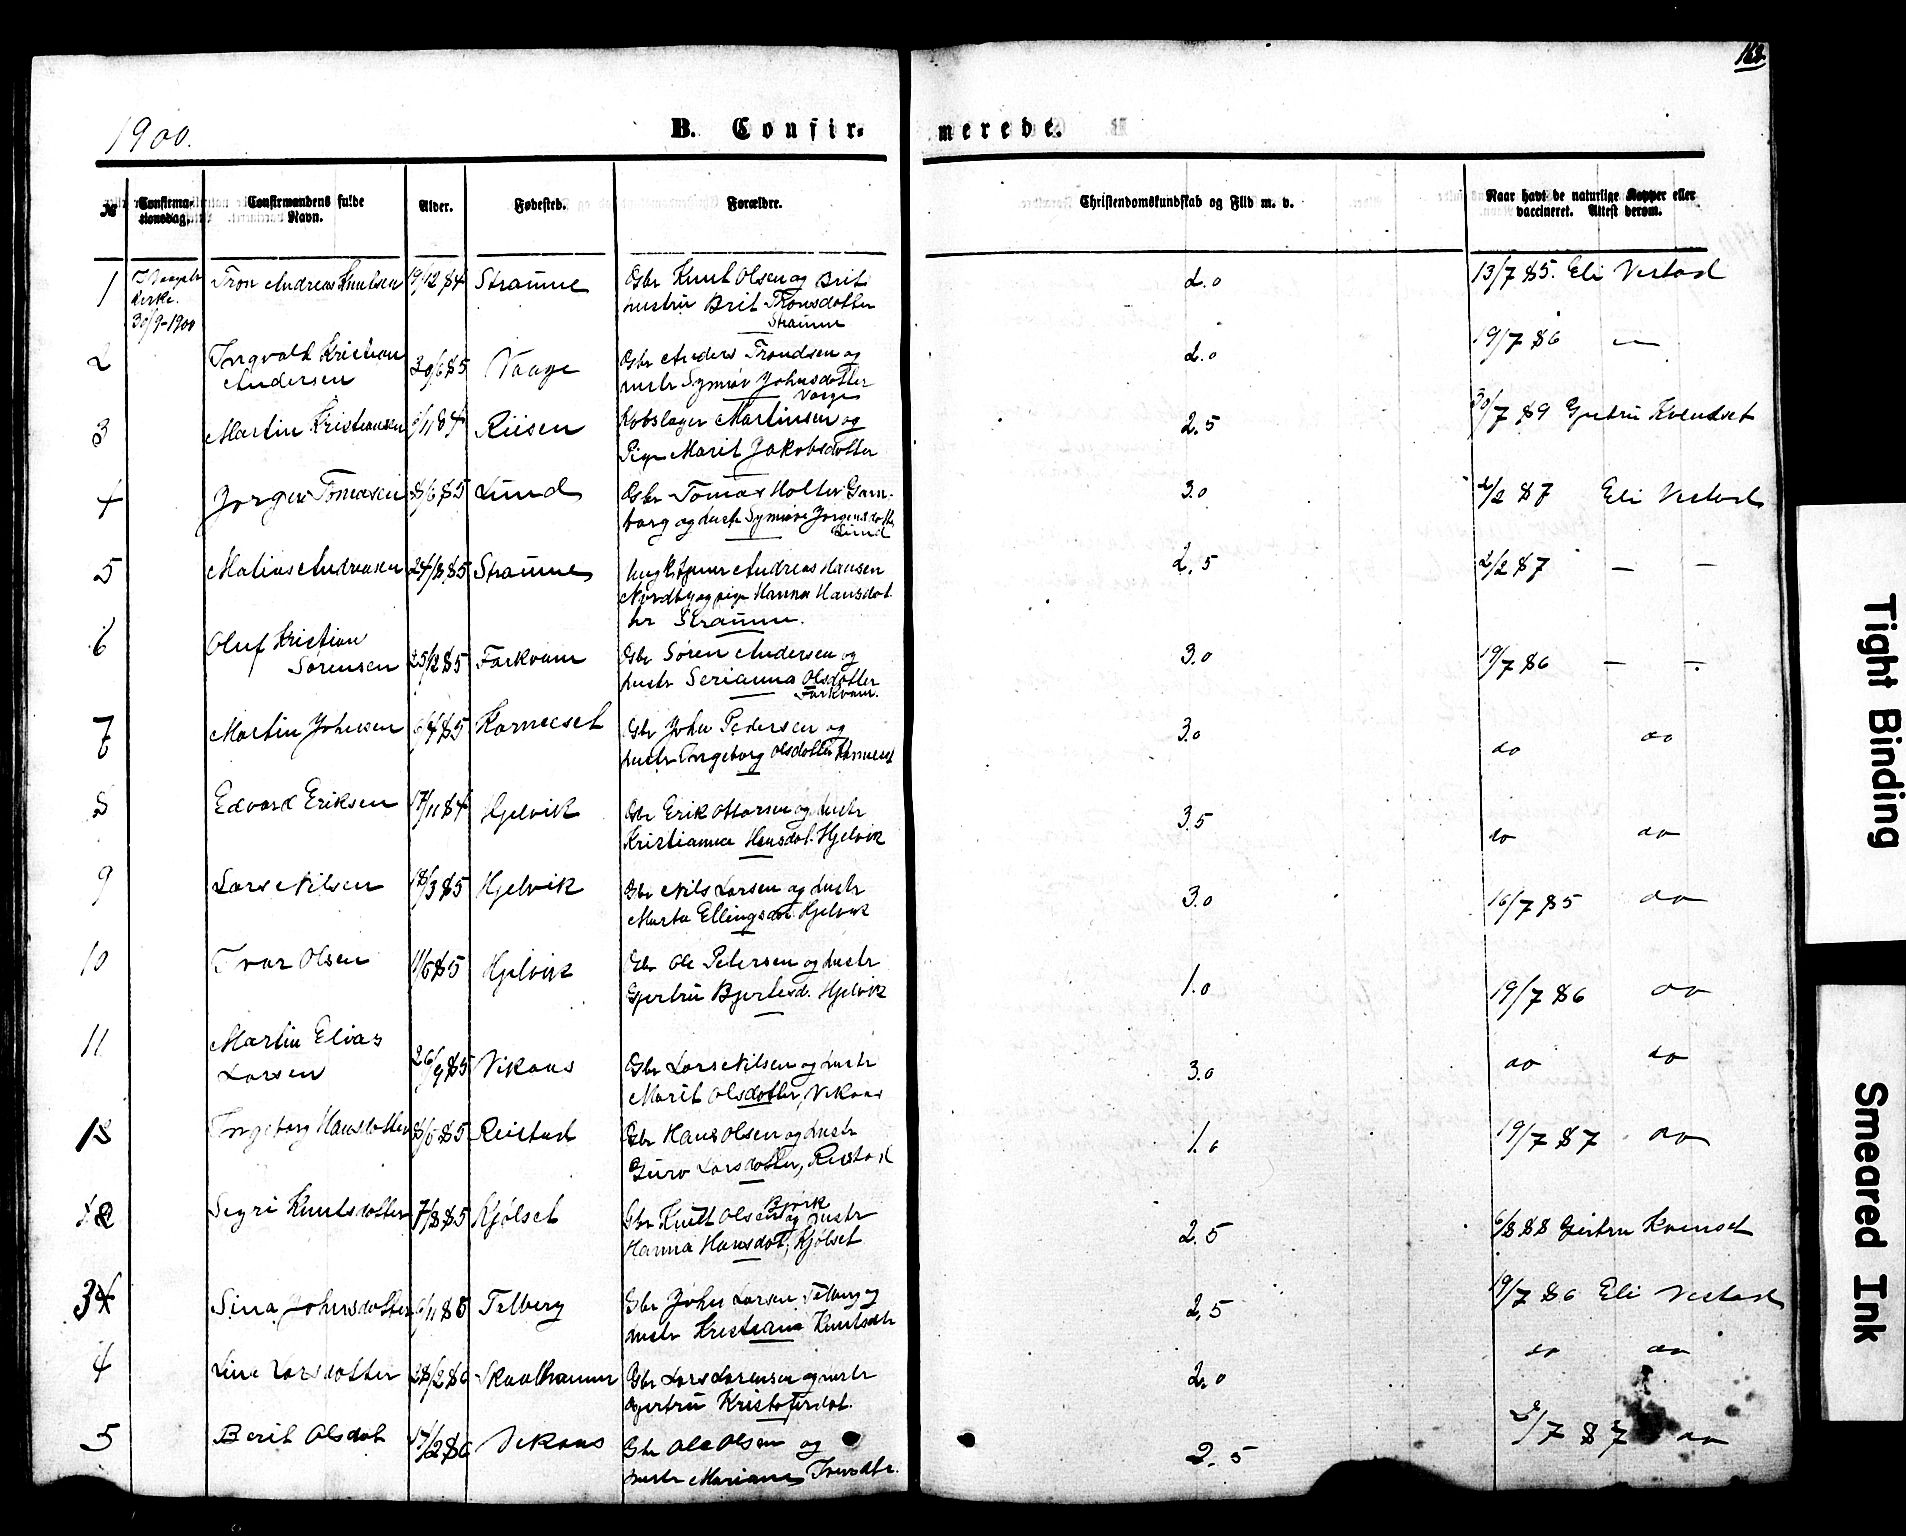 164.
1900.
B. Confir- merede.
№ Confirma- tionsdag. Confirmandens fulde Navn. Alder. Fødested. Forældre. Christendomskundskab og Flid m. v. Naar havt de naturlige Kopper eller vaccineret. Attest derom.
1 Kirke. 30/9-1900 Tron Andreas Knutsen 19/12 84 Straume Gbr Knut Olsen og Brit
hustru Brit Tronsdotter
Straume 2.0 13/7 85. Eli Vestad
2 Ingvald Kristian
Andersen 30/6 85 Vaage Gbr Anders Trondsen og
hustr Symiøv Johnsdotter
Vaage 2.0 19/7 86 —
3 Martin Kristiansen /11 84 Riisen Martinsen og
Pige Marit Jakobsdotter 2.5 30/7 89 Gjertru Kvendset
4 Jørgen Tomasen 8/6 85 Lund Gbr Tomas Holter Garn-
borg og hustr Symiøv Jørgensdotter
Lund 3.0 2/2 87 Eli Vestad
5 Matias Andreasen 24/8 85 Straume Ungkar Andreas Hansen
Nordby og pige Hanna Hansdot-
ter Straume. 2.5 2/2 87 — —
6 Oluf Kristian
Sørensen 25/12 85 Farkvam Gbr Søren Andersen og
hustr Serianna Olsdotter
Farkvam. 3.0 19/7 86 — —
7 Martin Johnsen 6/4 85 Gbr John Pedersen og
hustr Ingeborg Olsdotter 3.0 do do
8 Edvard Eriksen 17/11 84 Hjelvik Gbr Erik Ottarsen og hustr
Kristianna Hansdot. Hjelvik 3.5 do do
9 Lars Nilsen 18/3 85 Hjelvik Gbr Nils Larsen og hustr
Marta Ellingsdot. Hjelvik 3.0 16/7 85 do
10 Ivar Olsen 11/6 85 Hjelvik Gbr Ole Petersen og hustr
Gjertru Bjertesd. Hjelvik 1.0 19/7 86 do
11 Martin Elias
Larsen 26/9 85 Vikaas Gbr Lars Nilsen og hustr
Marit Olsdotter, Vikaas 3.0 do do
1 Ingeborg Hansdotter 8/6 85 Reistad Gbr Hans Olsen og hustr
Guro Larsdotter, Reistad 1.0 19/7 87 do
2 Segri Knutsdotter 7/8 85 Kjølset Gbr Knut Olsen Bjørk og hustr
Hanna Hansdot, Kjølset 2.5 6/8 88 Gjertru Kvenset
3 Sina Johnsdotter 6/11 85 Telberg Gbr John Larsen Telberg og
hustr Kristiana Knutsdtr 2.5 19/7 86 Eli Vestad
4 Line Larsdotter 28/2 86 Skaalhammer Gbr Lars Larensen og hustr
Gjertru Kristoferdot. 2.0 do do
5 Berit Olsdot 17/2 86 Vikaas Gbr Ole Olsen og
hustr Mariane Iversdtr. 2.5 2/7 87 do
Tight Binding
Smeared Ink